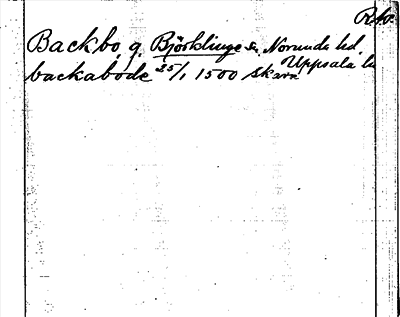 R.A.
Backbo, g. Björklinge sn. Norunda hd.
Uppsala l.
backabode 25/1 1500 Skara